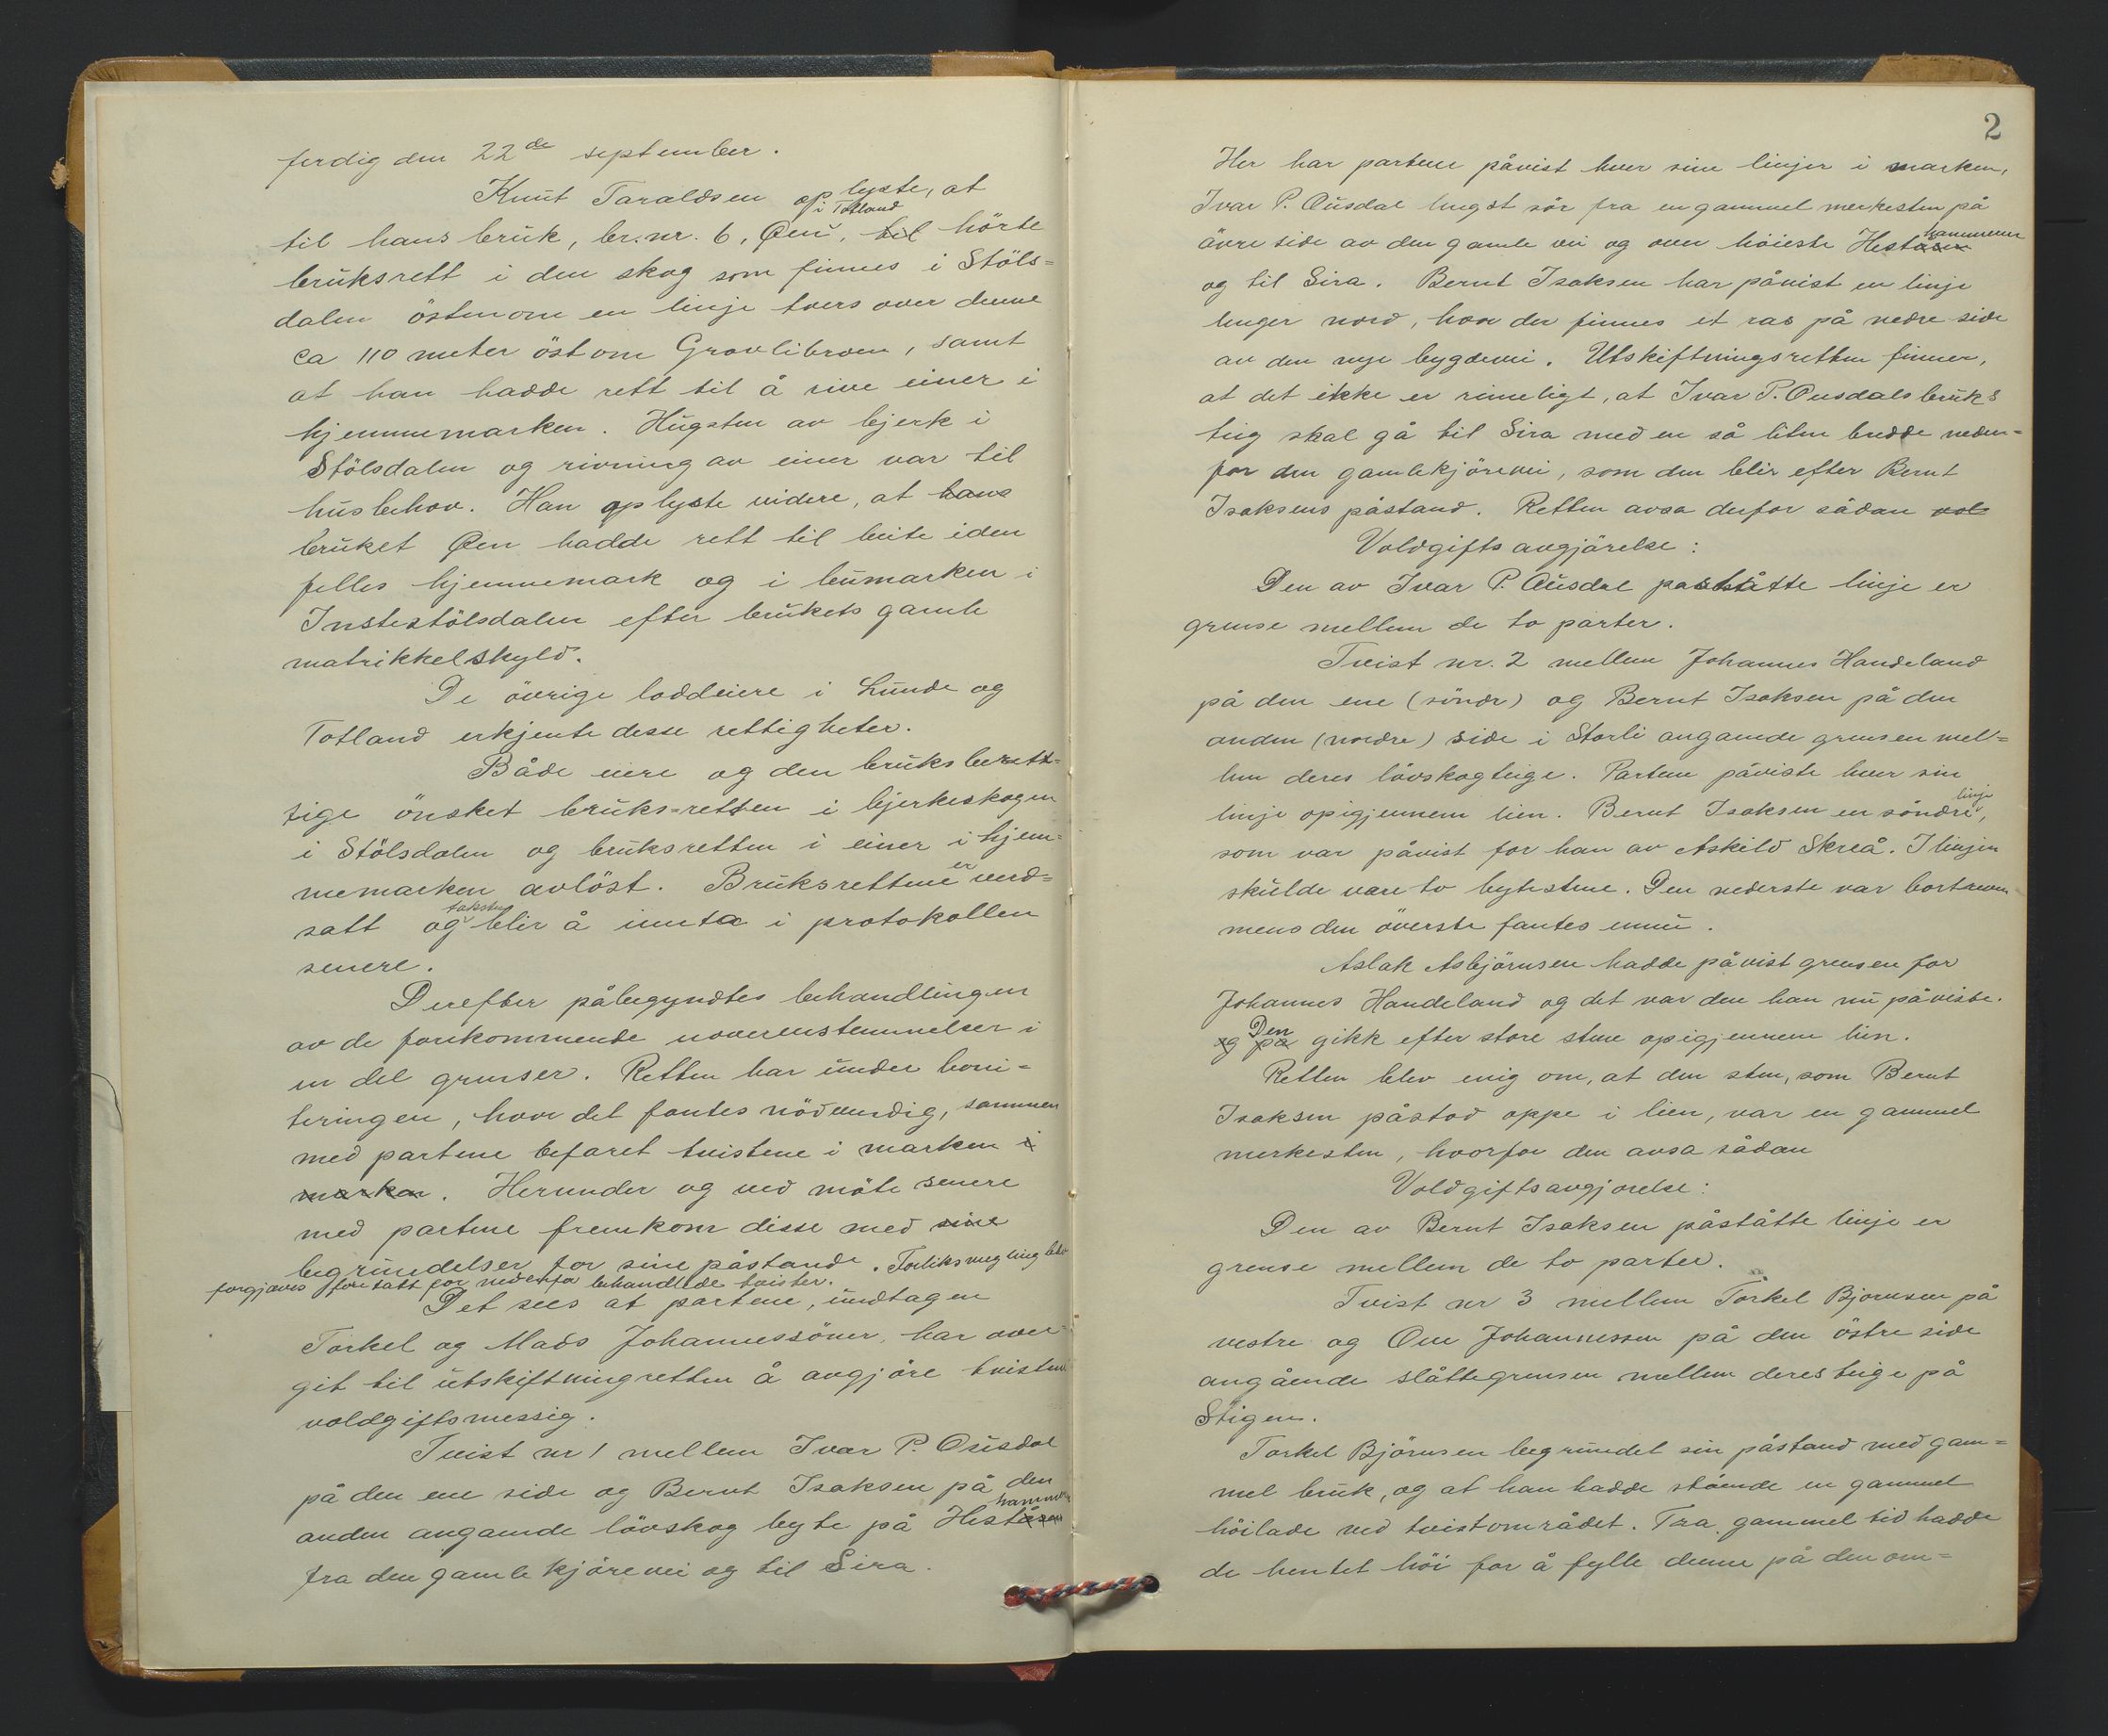 ferdig den 22de september.
Knut Taraldsen oplyste, at
i Totland
til hans bruk, br.nr. 6, Öen, til hörte
bruksrett i den skog som finnes i Stöls=
dalen östenom en linje tvers over denne
ca 110 meter öst om Gravlibroen, samt
at han hadde rett til å rive einer i
hjemmemarken. Hugsten av bjerk i
Stölsdalen og rivning av einer var til
husbehov. Han oplyste videre, at hans
bruket Öen hadde rett til beite i den
felles hjemmemark og i bumarken i
Instestölsdalen efter brukets gamle
matrikkelskyld.
De övrige loddeiere i Lunde og
Totland erkjente desse rettigheter.
Både eiere og den bruksberett=
tige önsket bruks=retten i bjerkeskogen
i Stölsdalen og bruksretten i einer i hjem=
memarken avlöst. Bruksrettene er verd=
satt og taksten blir å innta i protokollen
senere.
Derefter påbegyndtes behandlingen
av de forekommende uoverenstemmelser i
en del grenser. Retten har under boni=
teringen, hvor det fantes nödvendig, sammen
med partene befaret tvistene i marken i
marken. Herunder og ved möte senere
med partene fremkom disse med sine
begrundelser for sine påstande. Forliksmegling blev
forgjæves foretatt for nedenfor behandlede tvister.
Det sees at partene, undtagen
Torkel og Mads Johannessöner, har over=
git til utskiftningretten å avgjöre tvistene
voldgiftsmessig.
Tvist nr 1 mellem Ivar P. Ousdal
på den ene side og Bernt Isaksen på den
hammeren
anden angaende lövskog byte på Heståsen
fra den gamle kjörevei og til Sira.
2
Her har partene påvist hver sine linjer i marken,
Ivar P. Ousdal lengst sör fra en gammel merkesten på
hammeren
övre side av den gamle vei og over höieste Heståsen
og til Sira. Bernt Isaksen har påvist en linje
lenger nord, hvor der finnes et ras på nedre side
av den nye bygdevei. Utskiftningsretten finner,
at det ikke er rimeligt, at Ivar P. Ousdals bruks
teig skal gå til Sira med en så liten bredde neden=
for den gamle kjörevei, som den blir efter Bernt
Isaksens påstand. Retten avsa derfor sådan vol
Voldgiftsavgjörelse:
Den av Ivar P. Ousdal påståtte linje er
grense mellem de to parter.
Tvist nr. 2 mellem Johannes Handeland
på den ene (söndr) og Bernt Isaksen på den
anden (nordre) side i Storli angaende grensen mel=
lem deres lövskogteige. Partene påviste hver sin
linje opigjennem lien. Bernt Isaksen en söndre linje,
som var påvist for han av Askild Skreå. I linjen
skulde være to bytestene. Den nederste var bortreven
mens den överste fantes ennu.
Aslak Asbjörnsen hadde påvist grensen for
Johannes Handeland og det var den han nu påviste.
og på Den gikk efter store stene opigjennem lien.
Retten blev enig om, at den sten, som Bernt
Isaksen påstod oppe i lien, var en gammel
merkesten, hvorfor den avsa sådan
Voldgiftsavgjorelse:
Den av Bernt Isaksen påståtte linje er
grense mellem de to parter.
Tvist nr 3 mellem Torkel Bjornsen på
vestre og Ove Johannessen på den östre side
angående slåttegrensen mellem deres teige på
Stigen.
Torkel Björnsen begrundet sin påstand med gam=
mel bruk, og at han hadde stående en gammel
höilade ved tvistområdet. Fra gammel tid hadde
de hentet höi for å fylle denne på den om=